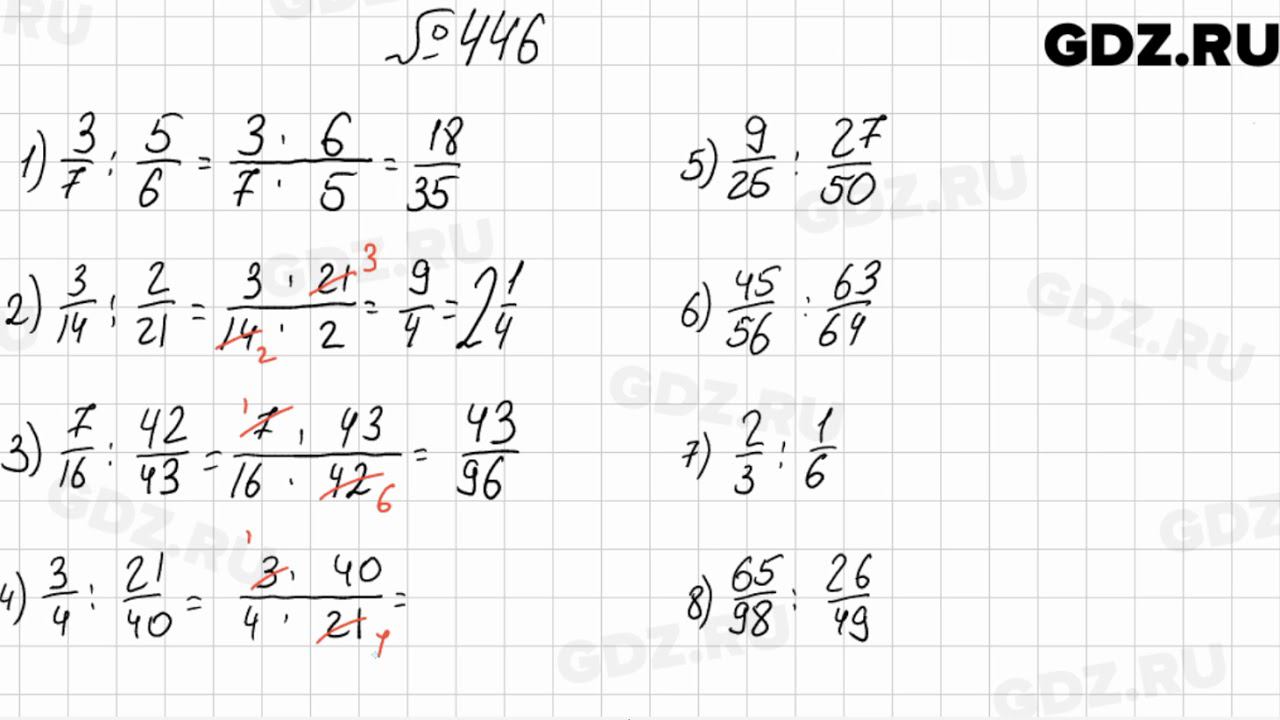 №446
GDZ.RU
1) 3/7 : 5/6 = (3 · 6)/(7 · 5) = 18/35
2) 3/14 : 2/21 = (3 · 21 3)/(14 2 · 2) = 9/4 = 2 1/4
3) 7/16 : 42/43 = (1 7 · 43)/(16 · 42 6) = 43/96
4) 3/4 : 21/40 = (1 3 · 40)/(4 · 21 7) =
5) 9/25 : 27/50
6) 45/56 : 63/64
7) 2/3 : 1/6
8) 65/98 : 26/49
GDZ.RU
GDZ.RU
GDZ.RU
GDZ.RU
GDZ.RU
GDZ.RU
GDZ.RU
GDZ.RU